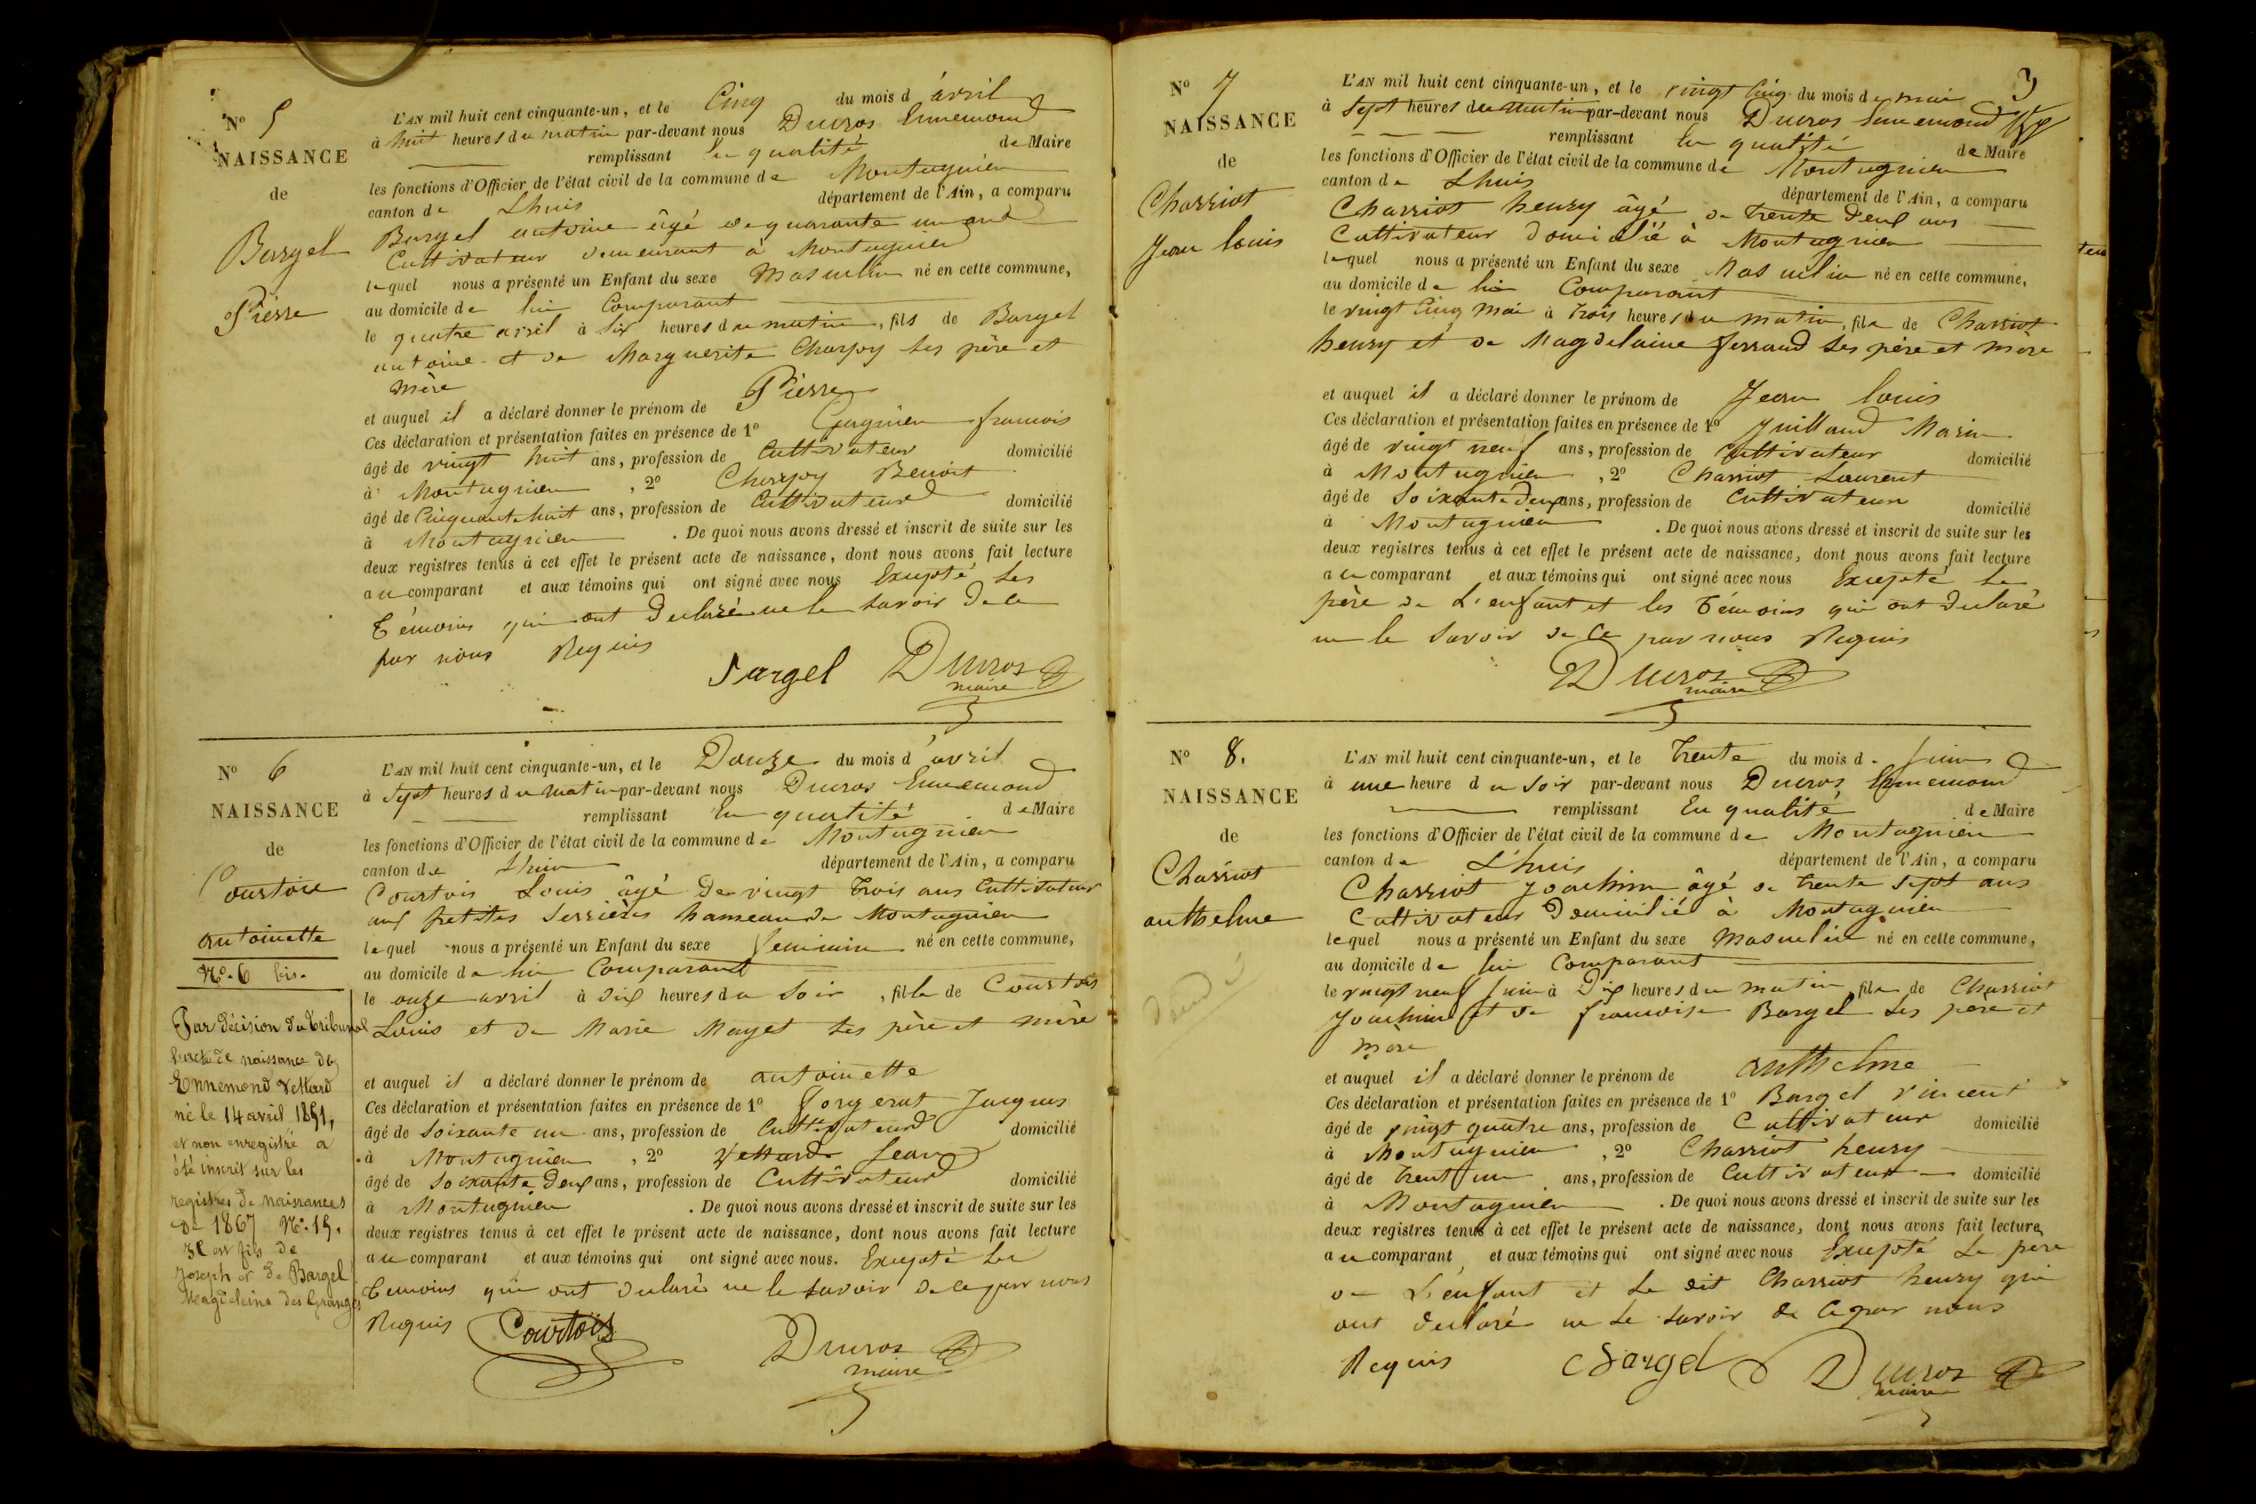 N° 5
NAISSANCE
de
Bargel
Pierre
L'AN mil huit cent cinquante-un, et le Cinq du mois d'avril
à huit heures du matin par-devant nous Ducros Ennemond
remplissant En qualité de Maire
les fonctions d'Officier de l'état civil de la commune de Montagnieu
canton de Lhuis département de l'Ain, a comparu
Bargel antoine âgé de quarante un ans
Cultivateur demeurant à Montagnieu
lequel nous a présenté un Enfant du sexe Masculin né en cette commune,
au domicile de lui Comparant
le quatre avril à six heures du matin, fils de Bargel
antoine et de Marguerite Charpy ses père et
mère
et auquel il a déclaré donner le prénom de Pierre
Ces déclaration et présentation faites en présence de 1° Gagnieu francois
âgé de vingt huit ans, profession de Cultivateur domicilié
à Montagnieu, 2° Charpy Benoit
âgé de Cinquante huit ans, profession de Cultivateur domicilié
à Montagnieu. De quoi nous avons dressé et inscrit de suite sur les
deux registres tenus à cet effet le présent acte de naissance, dont nous avons fait lecture
au comparant et aux témoins qui ont signé avec nous Excepté les
témoins qui ont declaré ne le savoir de ce
par nous Requis
Bargel Ducros
maire
N° 6
NAISSANCE
de
Courtois
antoinette
N°. 6 bis.
Par décision du tribunal
l'acte de naissance de
Ennemond Vettard
né le 14 avril 1851,
et non enregistré a
été inscrit sur les
registres de naissances
de 1867 N°. 15.
Il est fils de
Joseph et de Bargel
Magdeleine des Granges
L'AN mil huit cent cinquante-un, et le Douze du mois d'avril
à sept heures du matin par-devant nous Ducros Ennemond
remplissant En qualité de Maire
les fonctions d'Officier de l'état civil de la commune de Montagnieu
canton de Lhuis département de l'Ain, a comparu
Courtois Louis âgé de vingt trois ans Cultivateur
aux petites Serrières hameau de Montagnieu
lequel nous a présenté un Enfant du sexe feminin né en cette commune,
au domicile de lui Comparant
le onze avril à dix heures du soir, fille de Courtois
Louis et de Marie Mayet ses père et mère
et auquel il a déclaré donner le prénom de antoinette
Ces déclaration et présentation faites en présence de 1° Gorgerat Jacques
âgé de soixante un ans, profession de Cultivateur domicilié
à Montagnieu, 2° Vettard Jean
âgé de soixante deux ans, profession de Cultivateur domicilié
à Montagnieu. De quoi nous avons dressé et inscrit de suite sur les
deux registres tenus à cet effet le présent acte de naissance, dont nous avons fait lecture
au comparant et aux témoins qui ont signé avec nous. Excepté les
temoins qui ont declaré ne le savoir de ce par nous
Requis Courtois Ducros
maire
3
N° 7
NAISSANCE
de
Charriot
Jean louis
L'AN mil huit cent cinquante-un, et le vingt cinq du mois de mai
à sept heures du matin par-devant nous Ducros Ennemond
remplissant En qualité de Maire
les fonctions d'Officier de l'état civil de la commune de Montagnieu
canton de Lhuis département de l'Ain, a comparu
Charriot henry âgé de trente deux ans
Cultivateur domicilié à Montagnieu
lequel nous a présenté un Enfant du sexe Masculin né en cette commune,
au domicile de lui Comparant
le vingt cinq mai à trois heures du matin, fils de Charriot
henry et de Magdelaine ferrand ses père et mère
et auquel il a déclaré donner le prénom de Jean louis
Ces déclaration et présentation faites en présence de 1° Juilland Marin
âgé de vingt neuf ans, profession de Cultivateur domicilié
à Montagnieu, 2° Charriot Laurent
âgé de soixante deux ans, profession de Cultivateur domicilié
à Montagnieu. De quoi nous avons dressé et inscrit de suite sur les
deux registres tenus à cet effet le présent acte de naissance, dont nous avons fait lecture
au comparant et aux témoins qui ont signé avec nous Excepté le
père de L'enfant et les témoins qui ont declaré
ne le savoir de ce par nous Requis
Ducros
maire
N° 8.
NAISSANCE
de
Charriot
anthelme
L'AN mil huit cent cinquante-un, et le trente du mois de Juin
à une heure du soir par-devant nous Ducros Ennemond
remplissant En qualité de Maire
les fonctions d'Officier de l'état civil de la commune de Montagnieu
canton de L'huis département de l'Ain, a comparu
Charriot Joachim âgé de trente sept ans
Cultivateur Domicilié à Montagnieu
lequel nous a présenté un Enfant du sexe Masculin né en cette commune,
au domicile de lui Comparant
le vingt neuf Juin à Dix heures du matin, fils de Charriot
Joachim et de francoise Bargel ses père et
mère
et auquel il a déclaré donner le prénom de anthelme
Ces déclaration et présentation faites en présence de 1° Bargel vincent
âgé de vingt quatre ans, profession de Cultivateur domicilié
à Montagnieu, 2° Charriot henry
âgé de trent un ans, profession de Cultivateur domicilié
à Montagnieu. De quoi nous avons dressé et inscrit de suite sur les
deux registres tenus à cet effet le présent acte de naissance, dont nous avons fait lecture
au comparant et aux témoins qui ont signé avec nous Excepté le père
de L'enfant et le dit Charriot henry qui
ont declaré ne le savoir de ce par nous
Requis Bargel Ducros
maire